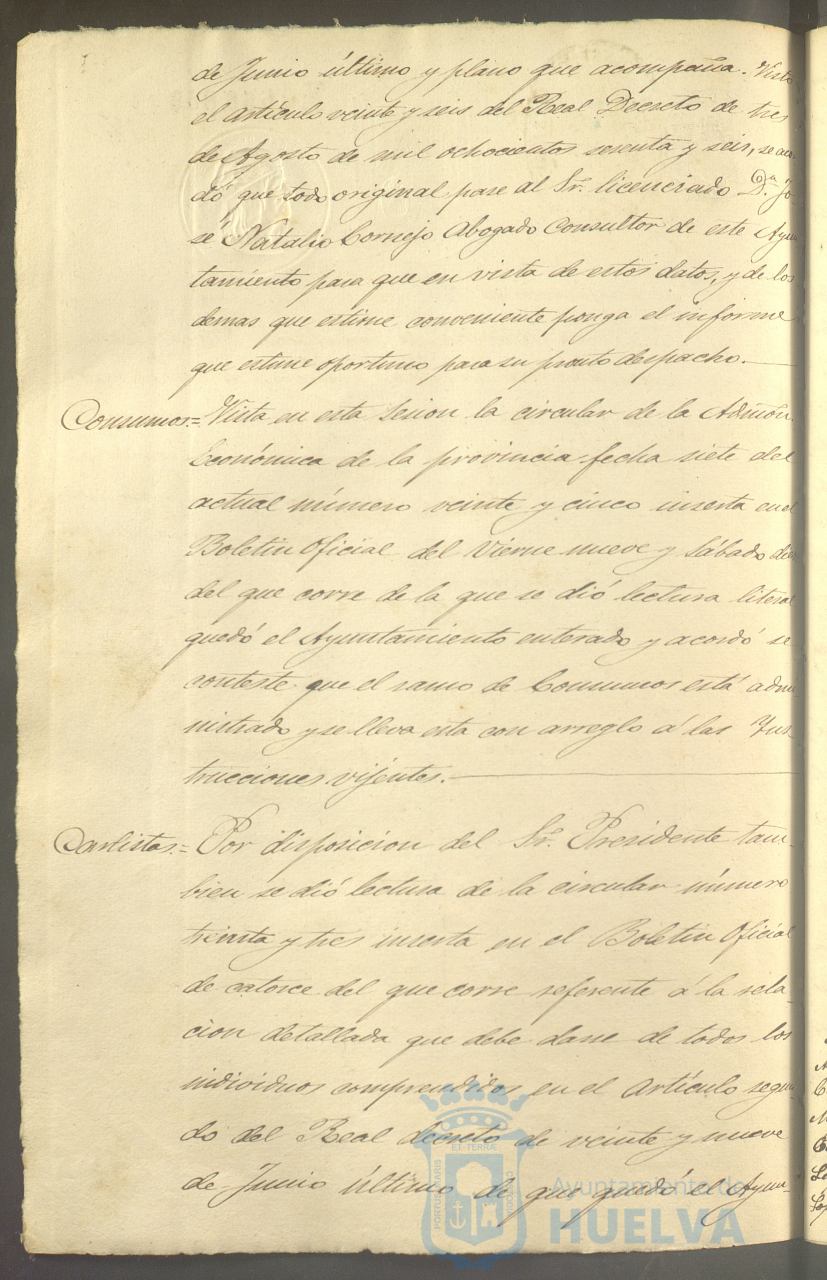 de Junio último y plano que acompaña. Visto
el artículo veinte y seis del Real Decreto de tres
de Agosto de mil ochocientos sesenta y seis, se acor
dó que todo original pase al Sr. licenciado D.ⁿ Jo
sé Natalio Cornejo Abogado Consultor de este Ayun
tamiento para que en vista de estos datos, y de los
demas que estime conveniente ponga el informe
que estime oportuno para su pronto despacho.
Consumos.= Vista en esta Sesion la circular de la Admon.
Económica de la provincia fecha siete del
actual número veinte y cinco inserta en el
Boletin Oficial del Vierne nueve y Sábado diez
del que corre de la que se dió lectura literal
quedó el Ayuntamiento enterado y acordó se
conteste que el ramo de Consumos está admi
nistrado y se lleva esta con arreglo á las Ins-
trucciones vijentes.
Carlistas.= Por disposicion del Sr. Presidente tam-
bien se dió lectura de la circular número
treinta y tres inserta en el Boletin Oficial
de catorce del que corre referente á la rela-
cion detallada que debe darse de todos los
individuos comprendidos en el artículo segun
do del Real decreto de veinte y nueve
de Junio último de que quedó el Ayun-
PORTUS MARIS
ET TERRÆ
CUSTODIA
Ayuntamiento de
HUELVA